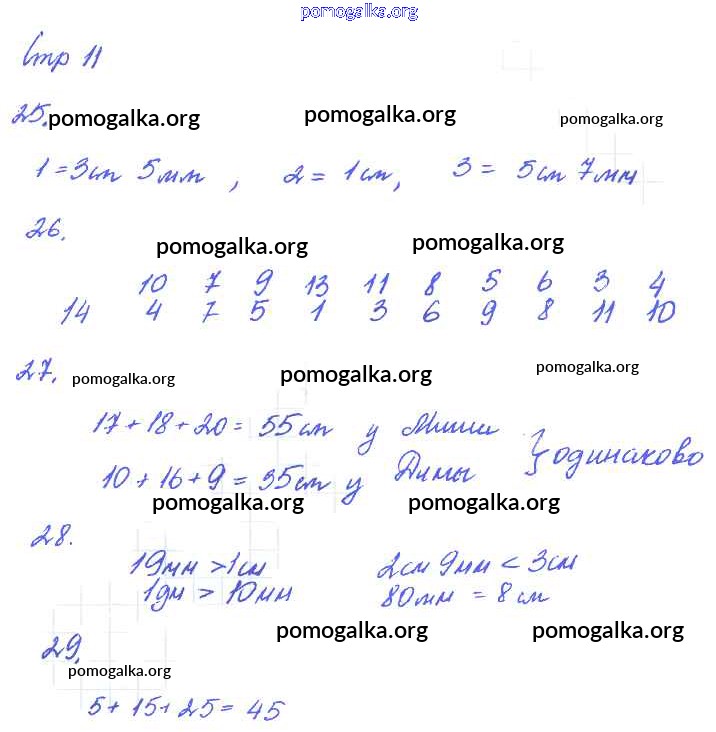 pomogalka.org
Стр 11
25. pomogalka.org pomogalka.org pomogalka.org
1 = 3см 5мм , 2 = 1см, 3 = 5см 7мм
26.
pomogalka.org pomogalka.org
10 7 9 13 11 8 5 6 3 4
14 4 7 5 1 3 6 9 8 11 10
27. pomogalka.org pomogalka.org pomogalka.org
17 + 18 + 20 = 55см у Миши } одинаково
10 + 16 + 9 = 35см у Димы
pomogalka.org pomogalka.org
28.
19мм > 1см 2см 9мм < 3см
1дм > 10мм 80мм = 8см
pomogalka.org pomogalka.org
29.
pomogalka.org
5 + 15 + 25 = 45